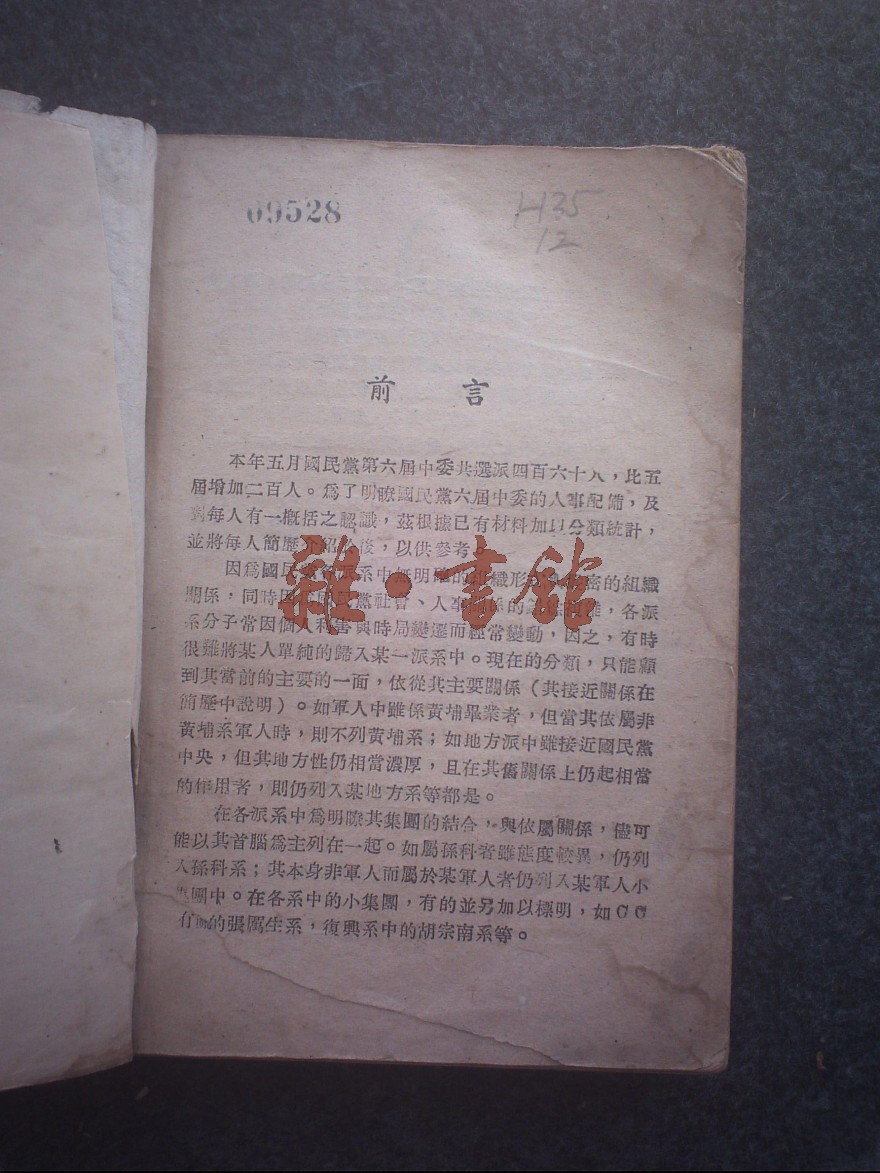 09528
H35
12
前言
本年五月國民黨第六屆中委共選派四百六十人，比五
屆增加二百人。爲了明瞭國民黨六屆中委的人事配備，及
對每人有一概括之認識，茲根據已有材料加以分類統計，
並將每人簡歷介紹於後，以供參考。
因爲國民黨各派系中無明確的組織形式與嚴密的組織
關係，同時因國民黨社會、人事關係的
各派
系分子常因個人利害與時局變遷而經常變動，因之，有時
很難將某人單純的歸入某一派系中。現在的分類，只能顧
到其當前的主要的一面，依從其主要關係（其接近關係在
簡歷中說明）。如軍人中雖係黃埔畢業者，但當其依屬非
黃埔系軍人時，則不列黃埔系；如地方派中雖接近國民黨
中央，但其地方性仍相當濃厚，且在其舊關係上仍起相當
的作用者，則仍列入某地方系等都是。
在各派系中爲明瞭其集團的結合，與依屬關係，儘可
能以其首腦爲主列在一起。如屬孫科者雖態度較異，仍列
入孫科系；其本身非軍人而屬於某軍人者仍列入某軍人小
集團中。在各系中的小集團，有的並另加以標明，如CC
的張厲生系，復興系中的胡宗南系等。
雜·書館